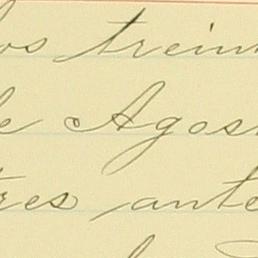 los treint
de Agost
tres ante